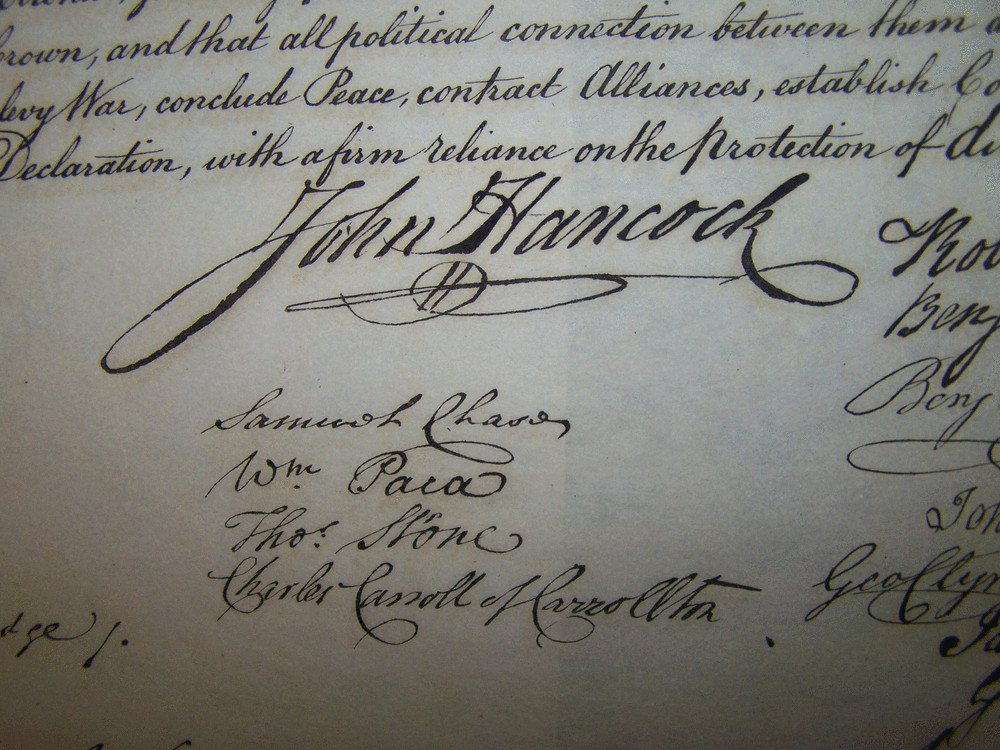 brown, and that all political connection between them
levy War, conclude Peace, contract Alliances, establish Co
Declaration, with a firm reliance on the protection of di
John Hancock
Rob
Benj
Benj
Samuel Chase
Wm Paca
Thos. Stone
Charles Carroll of Carrollton
Joh
Geo Clym
dge j.
Ja
G